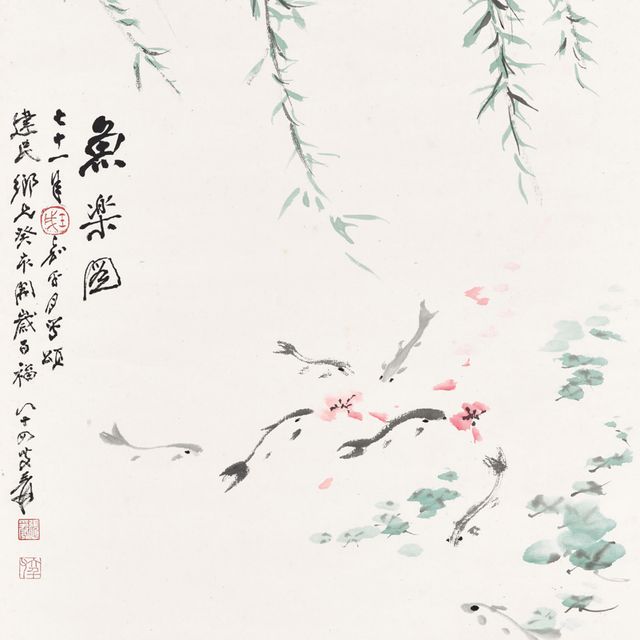 魚樂圖
七十一年嘉平月寫頌
建民鄉兄癸亥開歲百福 八十四叟爰